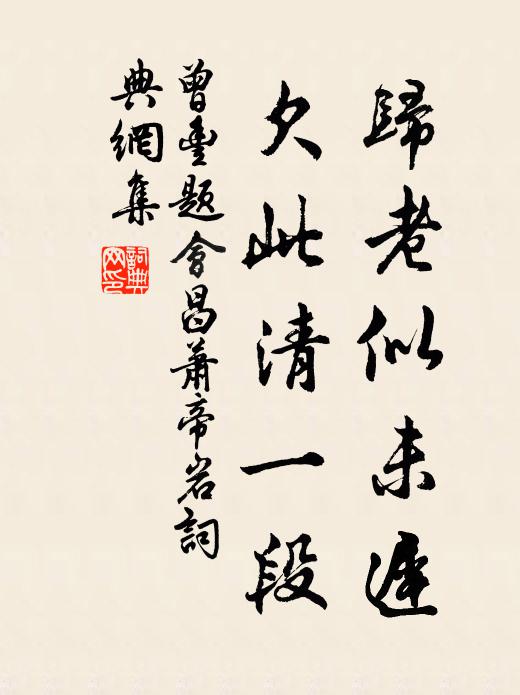 歸老似未遲
欠此清一段
曾豐題會昌蕭帝岩詞
典網集
詞典
网印